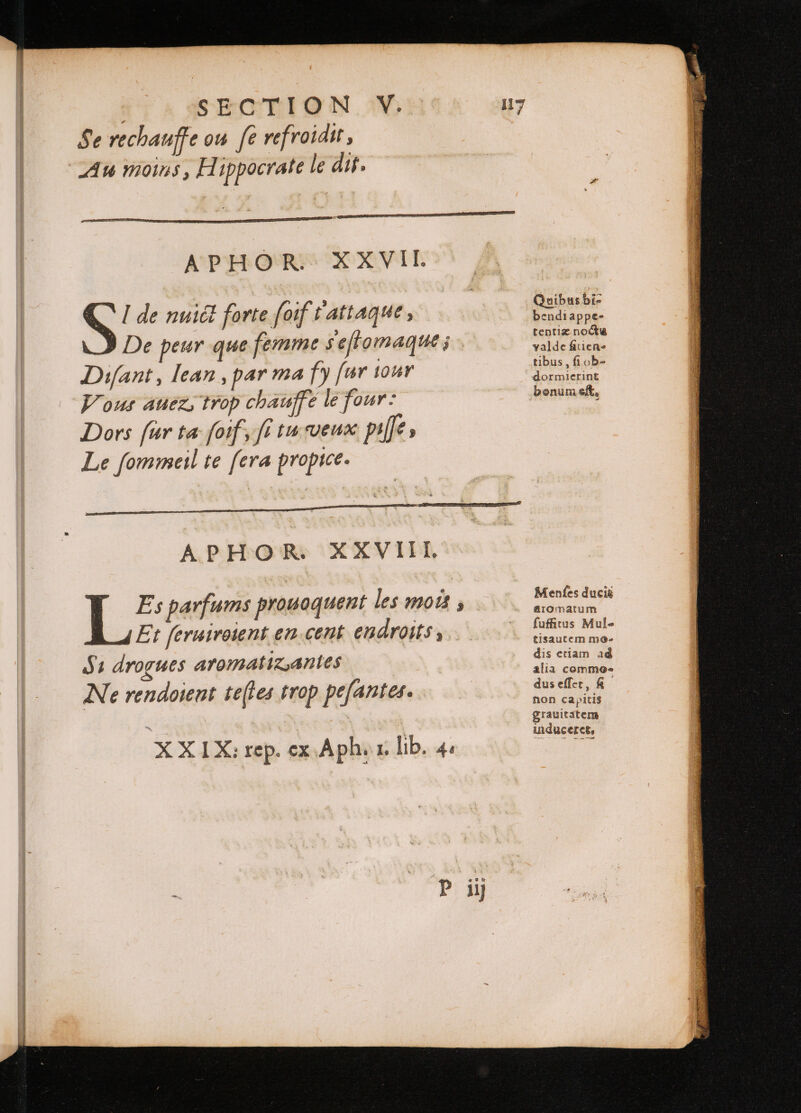 SECTION V. 117
Se rechauffe ou ſe refroidit,
Au moins, Hippocrate le dit.
APHOR. XXVII.
SI de nuict forte ſoif t'attaque,
De peur que femme s'eſtomaque;
Diſant, Iean, par ma fy ſur iour
Vous auez trop chauffé le four:
Dors ſur ta ſoif, ſi tu veux piſſe,
Le ſommeil te ſera propice.
Quibus bi-
bendi appe-
tentiæ noctu
valde ſitien-
tibus, ſi ob-
dormierint
bonum eſt.
APHOR. XXVIII.
LEs parfums prouoquent les mois,
Et ſeruiroient en cent endroits,
Si drogues aromatizantes
Ne rendoient teſtes trop peſantes.
Menſes ducit
aromatum
ſuffitus Mul-
tis autem mo-
dis etiam ad
alia commo-
dus eſſet, ſi
non capitis
grauitatem
induceret.
XXIX: rep. ex Aph. 1. lib. 4.
P iij